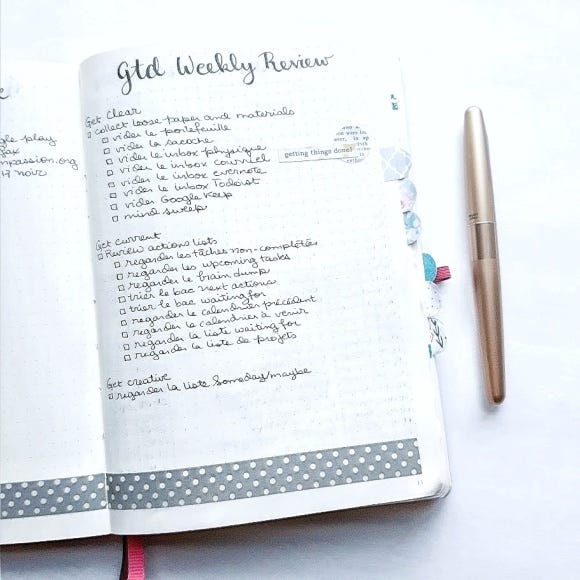 Gtd Weekly Review
Get Clear
collect loose paper and materials
vider le portefeuille
vider la sacoche
vider le inbox physique
vider le inbox courriel
vider le inbox evernote
vider le inbox Todoist
vider Google Keep
mind sweep
getting things done!
Get current
Review actions lists
regarder les tâches non-complétés
regarder les upcoming tasks
regarder le brain dump
trier le bac next actions
trier le bac waiting for
regarder le calendrier précédent
regarder le calendrier à venir
regarder la liste waiting for
regarder la liste de projets
Get creative
regarder la liste Someday/maybe
gle play
fox
mpassion.org
noir